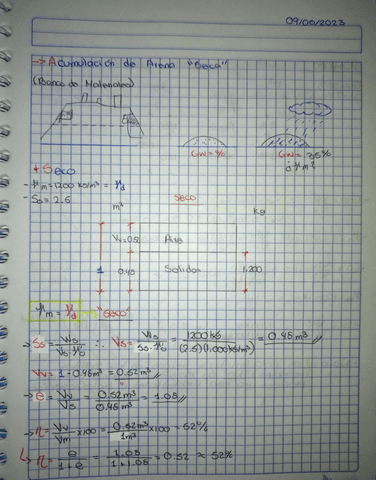 09/06/2023
→ Acumulación de Arena "Seca"
(Banco de Materiales)
Gw = %
Gw = 35%
¿γm?
* Seco
- γm = 1200 kg/m³ = γd
- Ss = 2.6
m³
seco
kg
Vv = 0.52
Aire
1
0.48
Solidos
1,200
γm = γd → "seco"
→ Ss = Ws / Vs · γo ∴ Vs = Ws / Ss · γo = 1200 kg / (2.5)(1,000 kg/m³) = 0.48 m³ //
Vv = 1 - 0.48 m³ = 0.52 m³
→ e = Vv / Vs = 0.52 m³ / 0.48 m³ = 1.08 //
→ n = Vv / Vm x 100 = 0.52 m³ / 1 m³ x 100 = 52% //
↳ n = e / 1 + e = 1.08 / 1 + 1.08 = 0.52 ≈ 52%